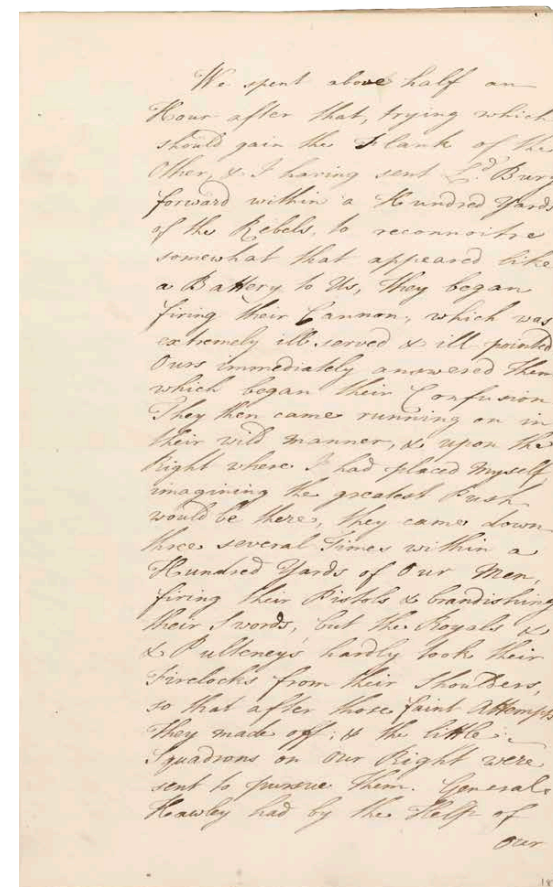 We spent above half an
Hour after that, trying which
should gain the Flank of the
Other, & I having sent Ld. Bury
forward within a Hundred Yards
of the Rebels, to reconnoitre
somewhat that appeared like
a Battery to Us, they began
firing their Cannon, which was
extremely ill served & ill pointed
Ours immediately answered them
which began their Confusion
They then came running on in
their wild manner, & upon the
Right where I had placed Myself,
imagining the greatest Push
would be there, they came down
three several Times within a
Hundred Yards of Our Men,
firing their Pistols & brandishing
their Swords, but the Royals &
& Pulteney's hardly took their
Firelocks from their Shoulders,
so that after those faint Attempts
They made off; & the little
Squadrons on Our Right were
sent to pursue them. General
Hawley had by the Help of
Our